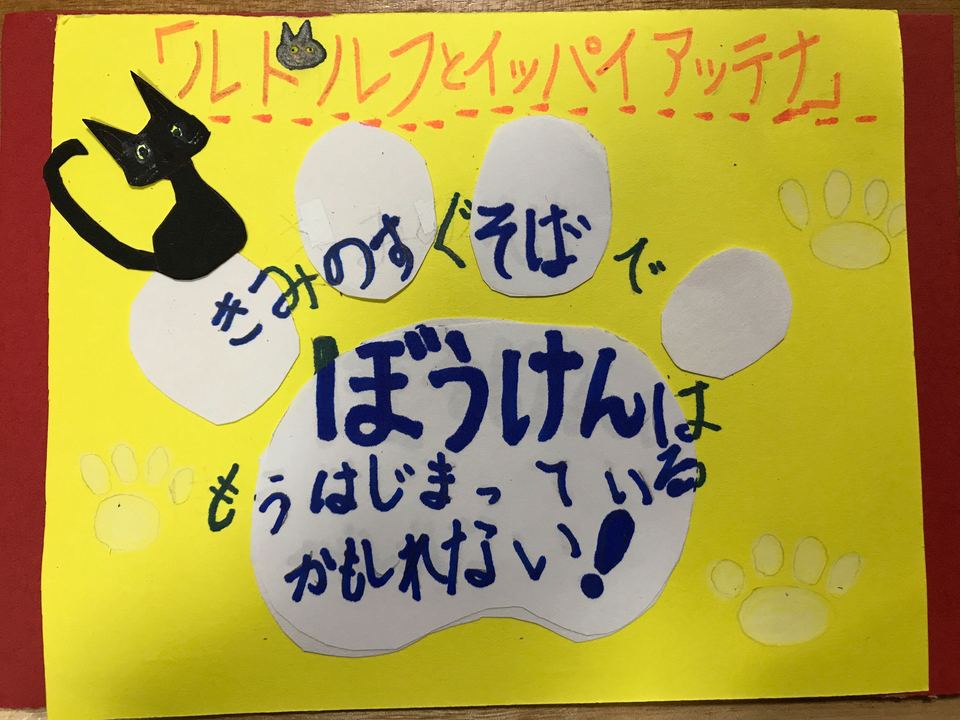 「ルドルフとイッパイアッテナ」
きみのすぐそばで
ぼうけんは
もうはじまっている
かもしれない!